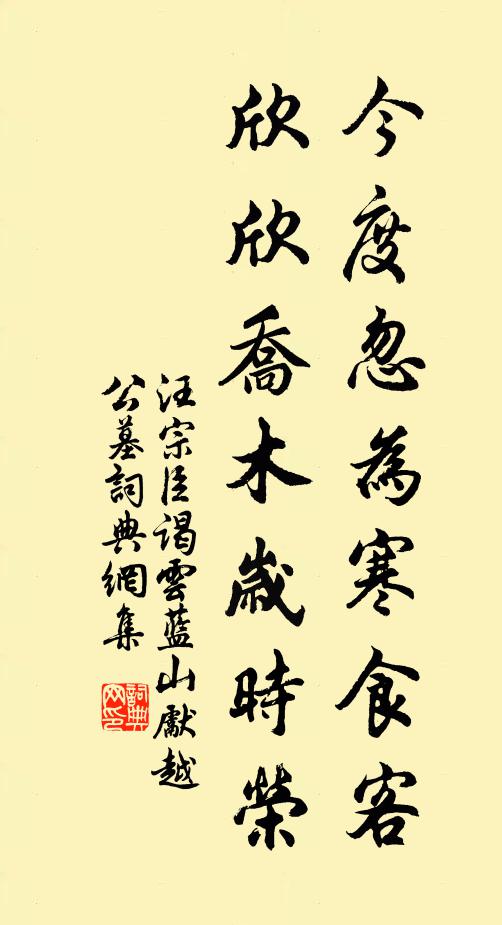 今度忽為寒食客
欣欣喬木歲時榮
汪宗臣謁雲藍山獻越
公墓詞典網集
詞典
网印